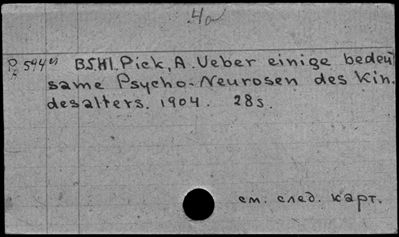 4a
P. 594 BSHl. Pick, A. Ueber einige bedeut
same Psycho-Neurosen des Kin.
desalters. 1904. 28s.
см. след. карт.